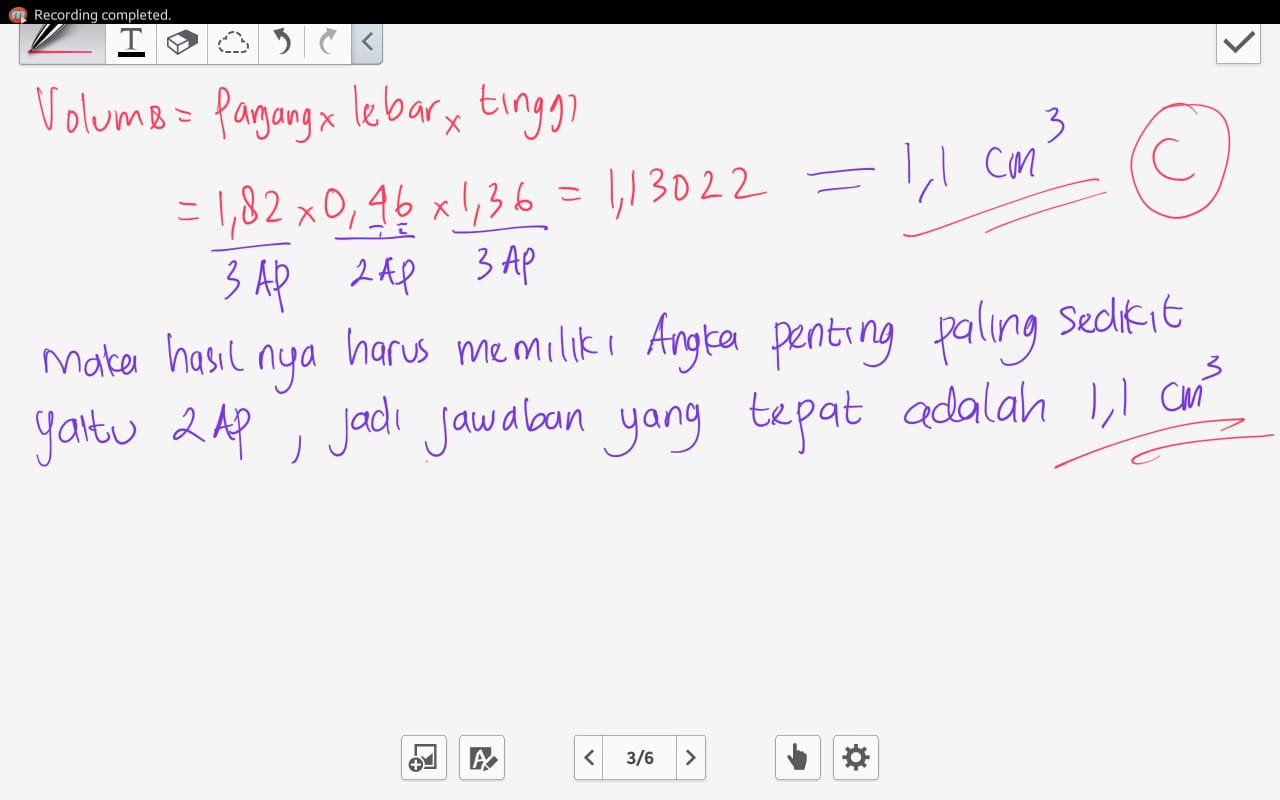 Recording completed.
T
Volume = Panjang x lebar x tinggi
= 1,82 x 0,46 x 1,36 = 1,13022 = 1,1 cm³ C
3 AP 2 AP 3 AP
Maka hasilnya harus memiliki Angka penting paling sedikit
yaitu 2 AP, jadi jawaban yang tepat adalah 1,1 cm³
A
3/6